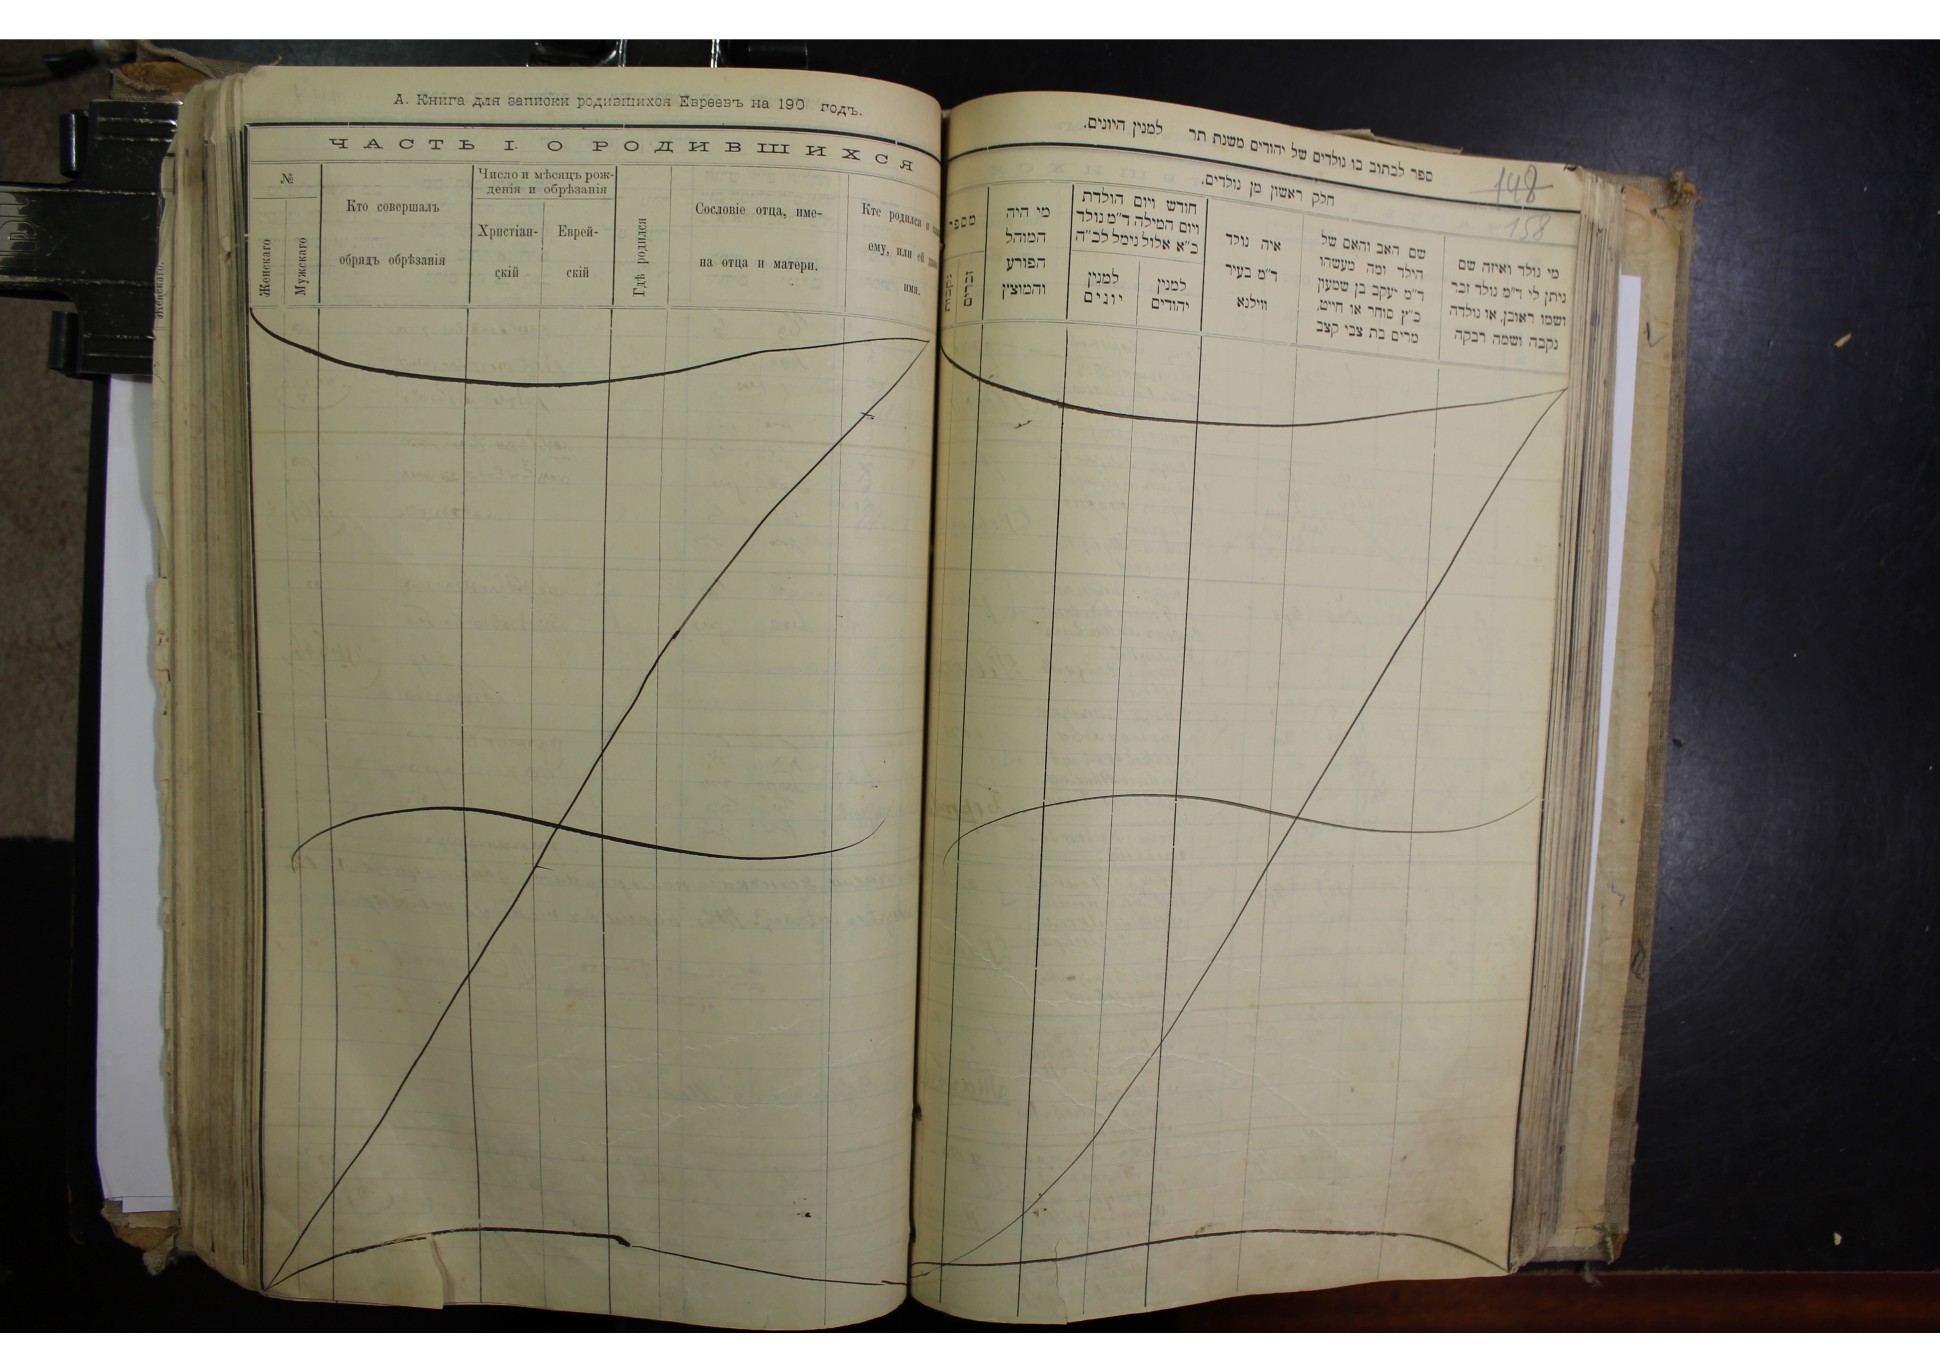 А. Книга для записки родившихся Евреевъ на 190 годъ.
ЧАСТЬ I. О РОДИВШИХСЯ
№
Женскаго
Мужскаго
Кто совершалъ
обрядъ обрѣзанія
Число и мѣсяцъ рож-
денія и обрѣзанія
Христіан-
скій
Еврей-
скій
Гдѣ родился
Сословіе отца, име-
на отца и матери.
Кте родился и
ему, или ей
имя.
ספר לכתוב בו נולדים של יהודים משנת תר למנין היונים.
חלק ראשון מן נולדים.
148
158
מספר
נקבות
זכרים
מי היה
המוהל
הפורע
והמוצץ
חודש ויום הולדת
ויום המילה ד״מ נולד
כ״א אלול נימל לכ״ה
למנין
יונים
למנין
יהודים
איה נולד
ד״מ בעיר
ווילנא
שם האב והאם של
הילד ומה מעשהו
ד״מ יעקב בן שמעון
כ״ץ סוחר או חייט,
מרים בת צבי קצב
מי נולד ואיזה שם
ניתן לי ד״מ נולד זכר
ושמו ראובן, או נולדה
נקבה ושמה רבקה
Женскаго.